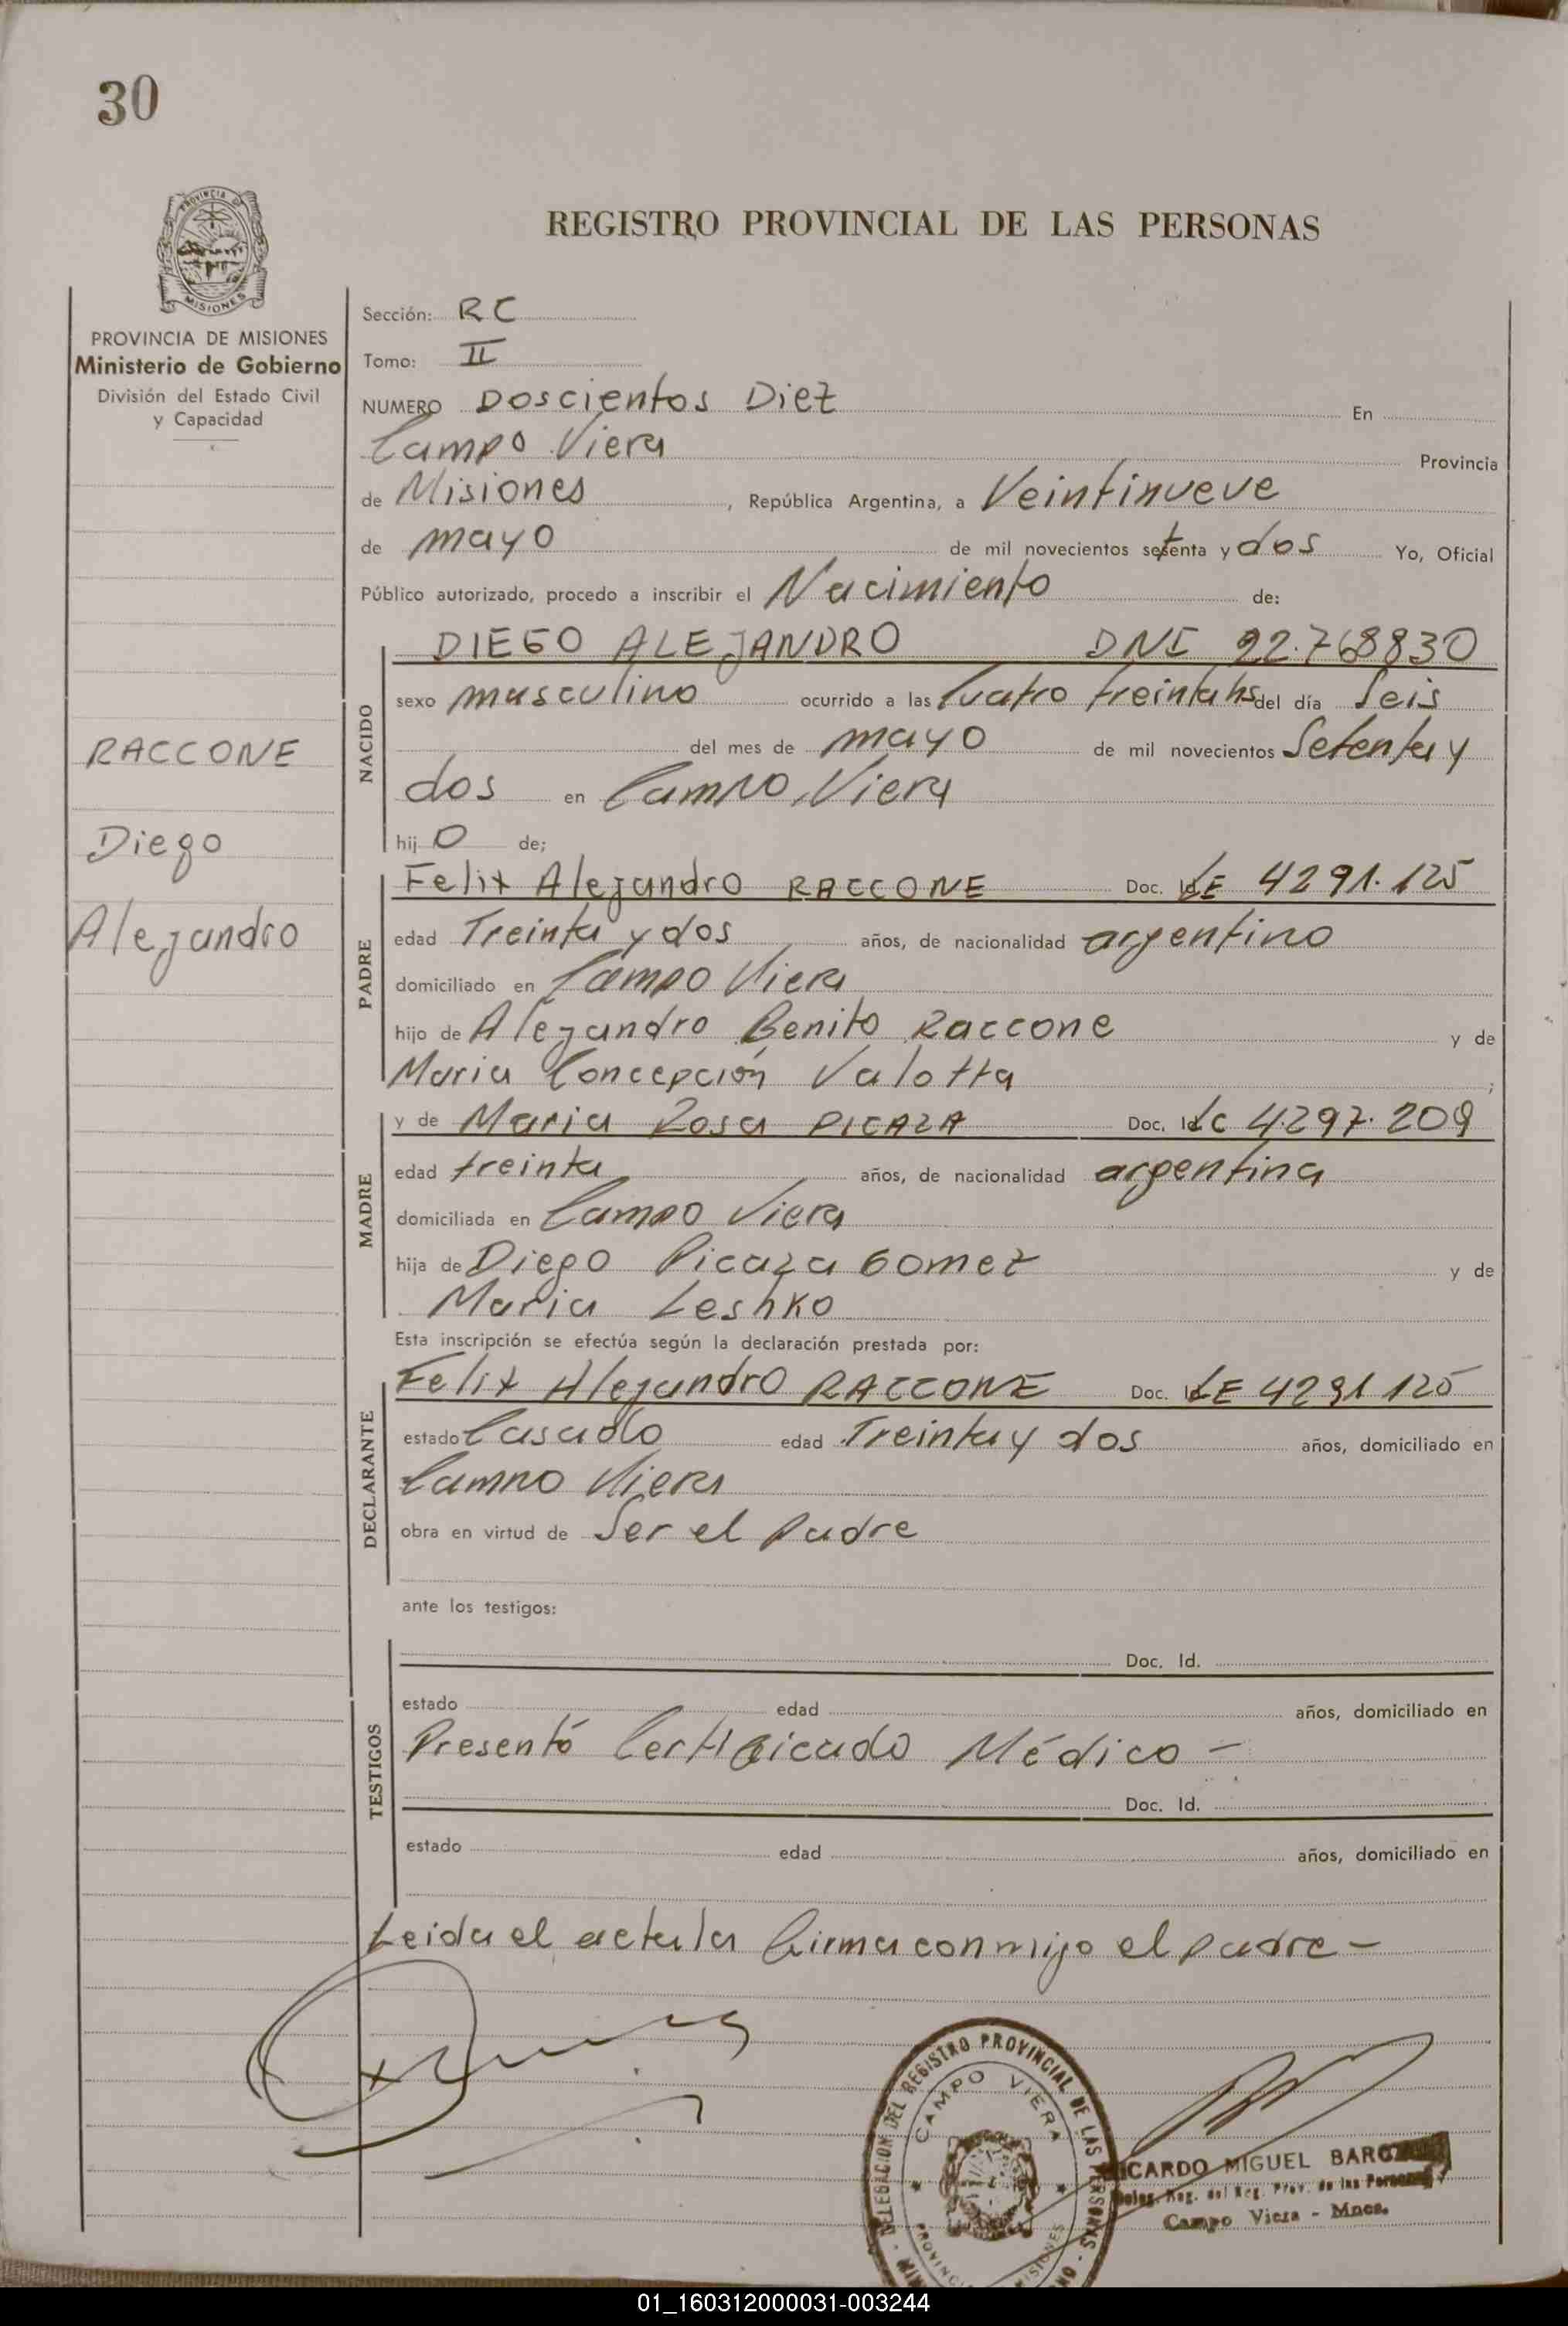 30
PROVINCIA
MISIONES
REGISTRO PROVINCIAL DE LAS PERSONAS
PROVINCIA DE MISIONES
Ministerio de Gobierno
División del Estado Civil
y Capacidad
RACCONE
Diego
Alejandro
Sección: RC
Tomo: II
NUMERO Doscientos Diez En
Campo Viera Provincia
de Misiones, República Argentina, a Veintinueve
de mayo de mil novecientos setenta y dos Yo, Oficial
Público autorizado, procedo a inscribir el Nacimiento de:
NACIDO
DIEGO ALEJANDRO DNI 22.768830
sexo masculino ocurrido a las Cuatro treinta hs del día Seis
del mes de mayo de mil novecientos Setenta y
dos en Campo Viera
hij o de;
PADRE
Felix Alejandro RACCONE Doc. LE 4291.125
edad Treinta y dos años, de nacionalidad argentino
domiciliado en Campo Viera
hijo de Alejandro Benito Raccone y de
Maria Concepción Valotta ;
MADRE
y de Maria Rosa PICAZA Doc. LC 4.297.209
edad treinta años, de nacionalidad argentina
domiciliada en Campo Viera
hija de Diego Picaza Gomez y de
Maria Leshko
Esta inscripción se efectúa según la declaración prestada por:
DECLARANTE
Felix Alejandro RACCONE Doc. LE 4291125
estado Casado edad Treinta y dos años, domiciliado en
Campo Viera
obra en virtud de Ser el Padre
ante los testigos:
TESTIGOS
Doc. Id.
estado edad años, domiciliado en
Presentó Certificado Médico -
Doc. Id.
estado edad años, domiciliado en
Leida el acta la firma conmigo el padre -
DELEGACION DEL REGISTRO PROVINCIAL DE LAS PERSONAS
CAMPO VIERA
MISIONES
MIGUEL
Campo Viera - Mnes.
01_160312000031-003244